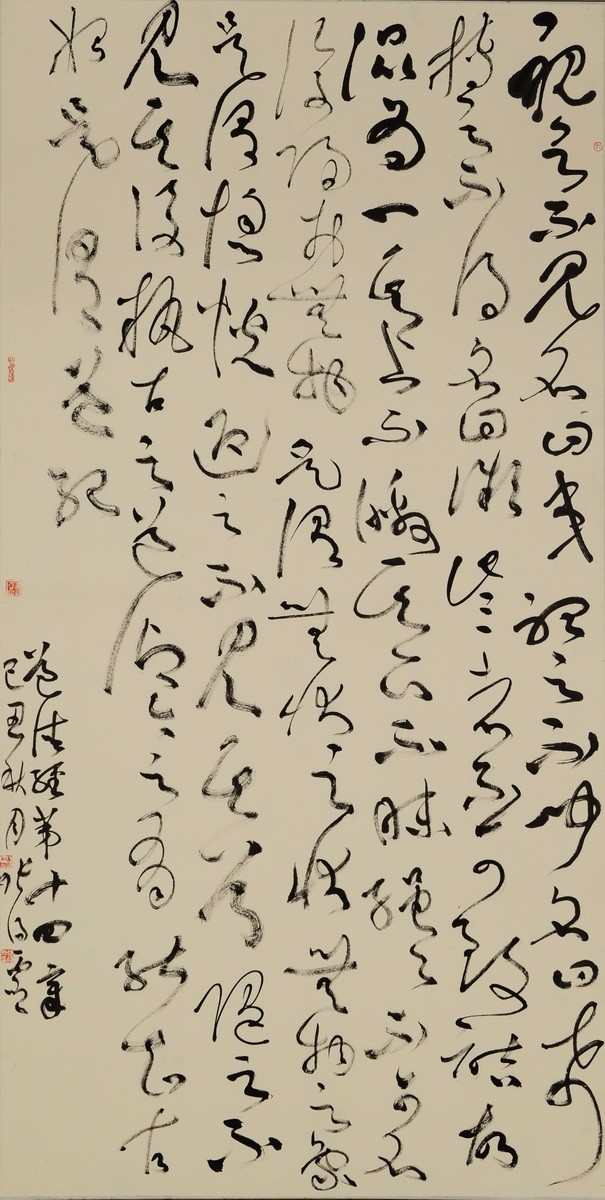 視之不見名曰夷聽之不聞名曰希
搏之不得名曰微此三者不可致詰故
混為一其上不皦其下不昧繩々不可名
復歸於無物是謂無狀之狀無物之象
是謂惚恍迎之不見其首隨之不
見其後執古之道御今之有能知古
始是謂道紀
道德經第十四章
己丑秋月張